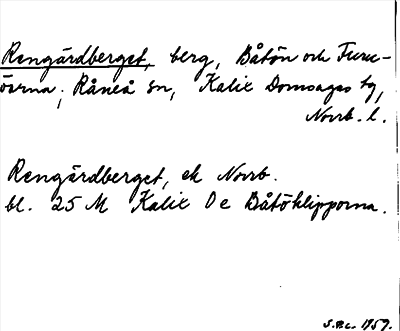 Rengärdberget, berg, Båtön och Furu-
öarna, Råneå sn, Kalix Domsagas tg,
Norrb. l.
Rengärdberget, ek Norrb.
bl. 25 M Kalix De Båtöklipporna.
1959.